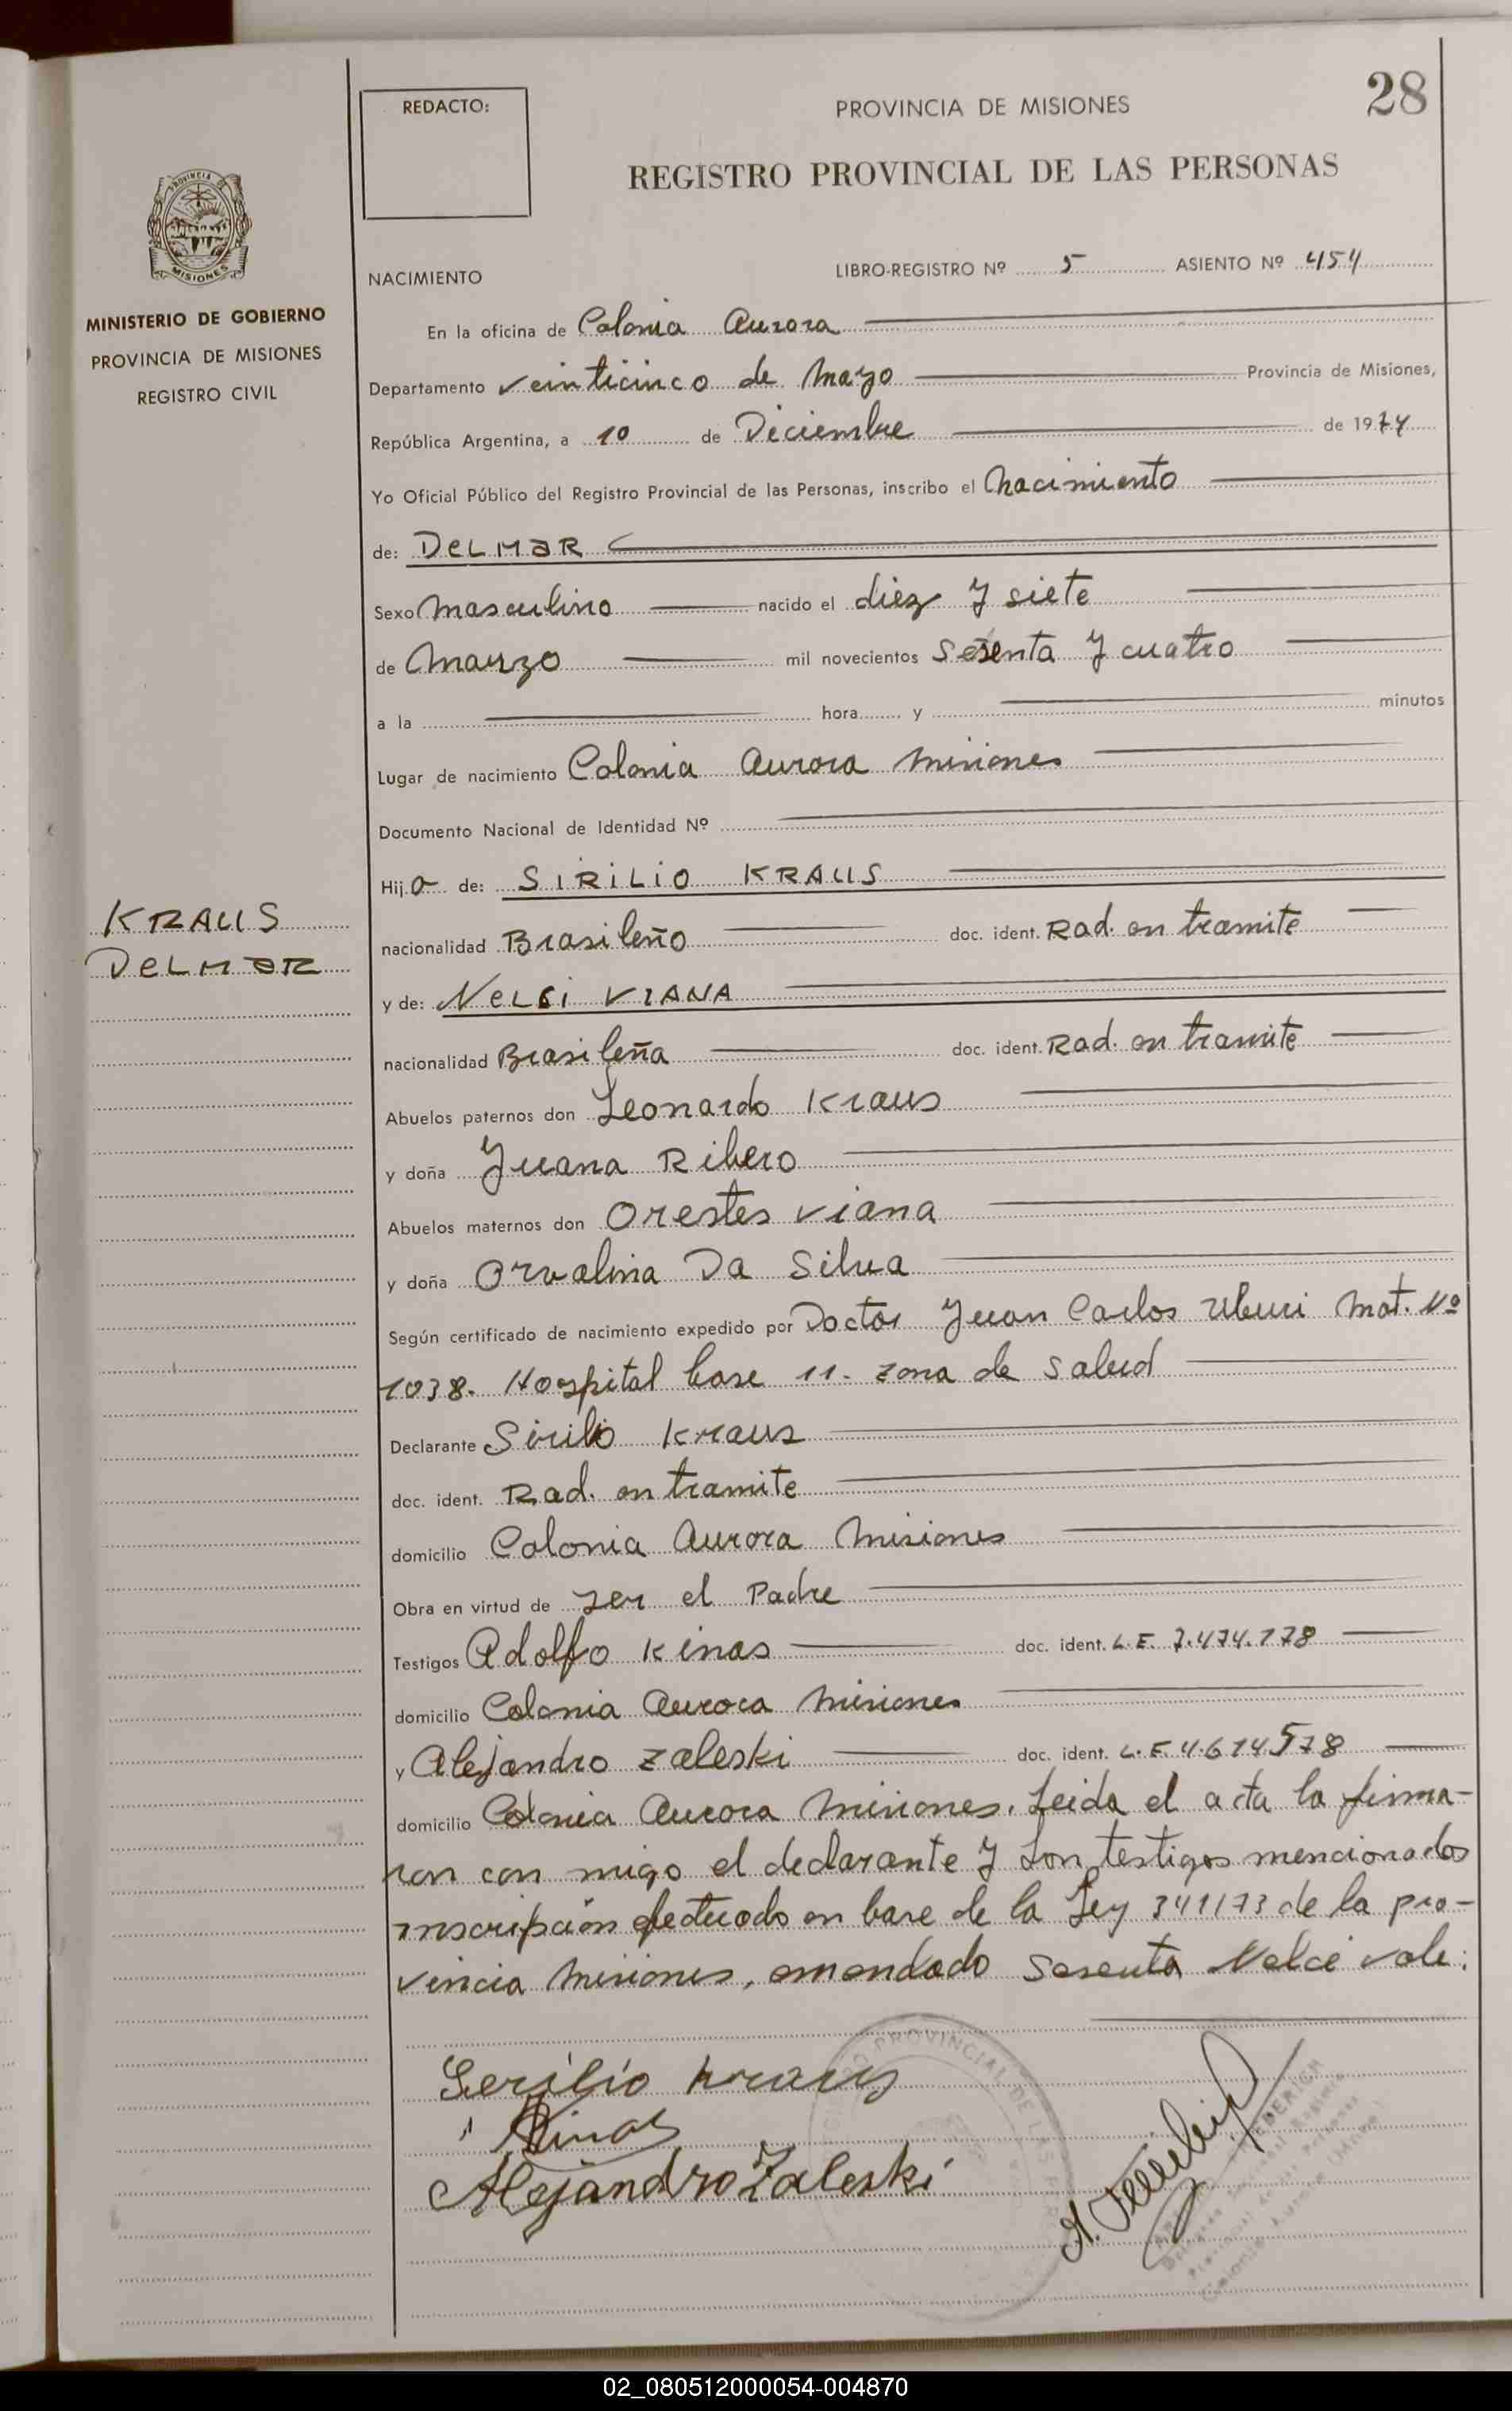 28
REDACTO:
PROVINCIA DE MISIONES
REGISTRO PROVINCIAL DE LAS PERSONAS
PROVINCIA DE
MISIONES
MINISTERIO DE GOBIERNO
PROVINCIA DE MISIONES
REGISTRO CIVIL
NACIMIENTO LIBRO-REGISTRO Nº 5 ASIENTO Nº 454
En la oficina de Colonia Aurora
Departamento veinticinco de Mayo Provincia de Misiones,
República Argentina, a 10 de Diciembre de 1974
Yo Oficial Público del Registro Provincial de las Personas, inscribo el Nacimiento
de: DELMAR
Sexo Masculino nacido el diez y siete
de Marzo mil novecientos Sesenta y cuatro
a la hora y minutos
Lugar de nacimiento Colonia Aurora Misiones
Documento Nacional de Identidad Nº
Hijo de: SIRILIO KRAUS
KRAUS
DELMAR
nacionalidad Brasileño doc. ident. Rad. en tramite
y de: NELCI VIANA
nacionalidad Brasileña doc. ident. Rad. en tramite
Abuelos paternos don Leonardo Kraus
y doña Juana Ribero
Abuelos maternos don Orestes Viana
y doña Orvalina Da Silva
Según certificado de nacimiento expedido por Doctor Juan Carlos Mat. Nº
1038. Hospital base 11- zona de salud
Declarante Sirilio Kraus
doc. ident. Rad. en tramite
domicilio Colonia Aurora Misiones
Obra en virtud de ser el Padre
Testigos Adolfo Kinas doc. ident. L.E. 7.474.178
domicilio Colonia Aurora Misiones
y Alejandro Zaleski doc. ident. L.E. 4.614.578
domicilio Colonia Aurora Misiones. Leida el acta la firma-
ron con migo el declarante y son testigos mencionados
inscripción efectuado en base de la Ley 341/73 de la pro-
vincia Misiones, emendado Sesenta Nelci vale:
Serilio Kraus
Kinas
Alejandro Zaleski
REGISTRO PROVINCIAL DE LAS
02_080512000054-004870